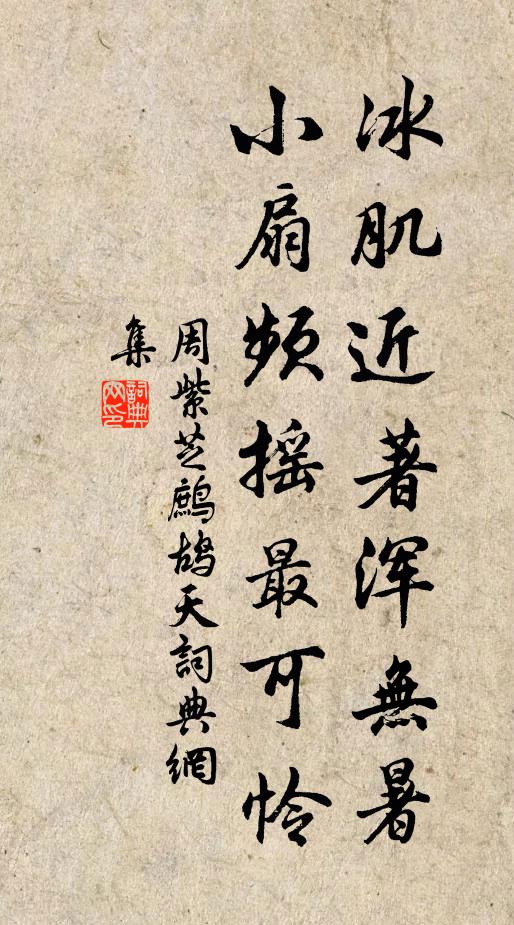 冰肌近著浑無暑
小扇频摇最可怜
周紫芝鷓鴣天詞典網
集
詞典
网印